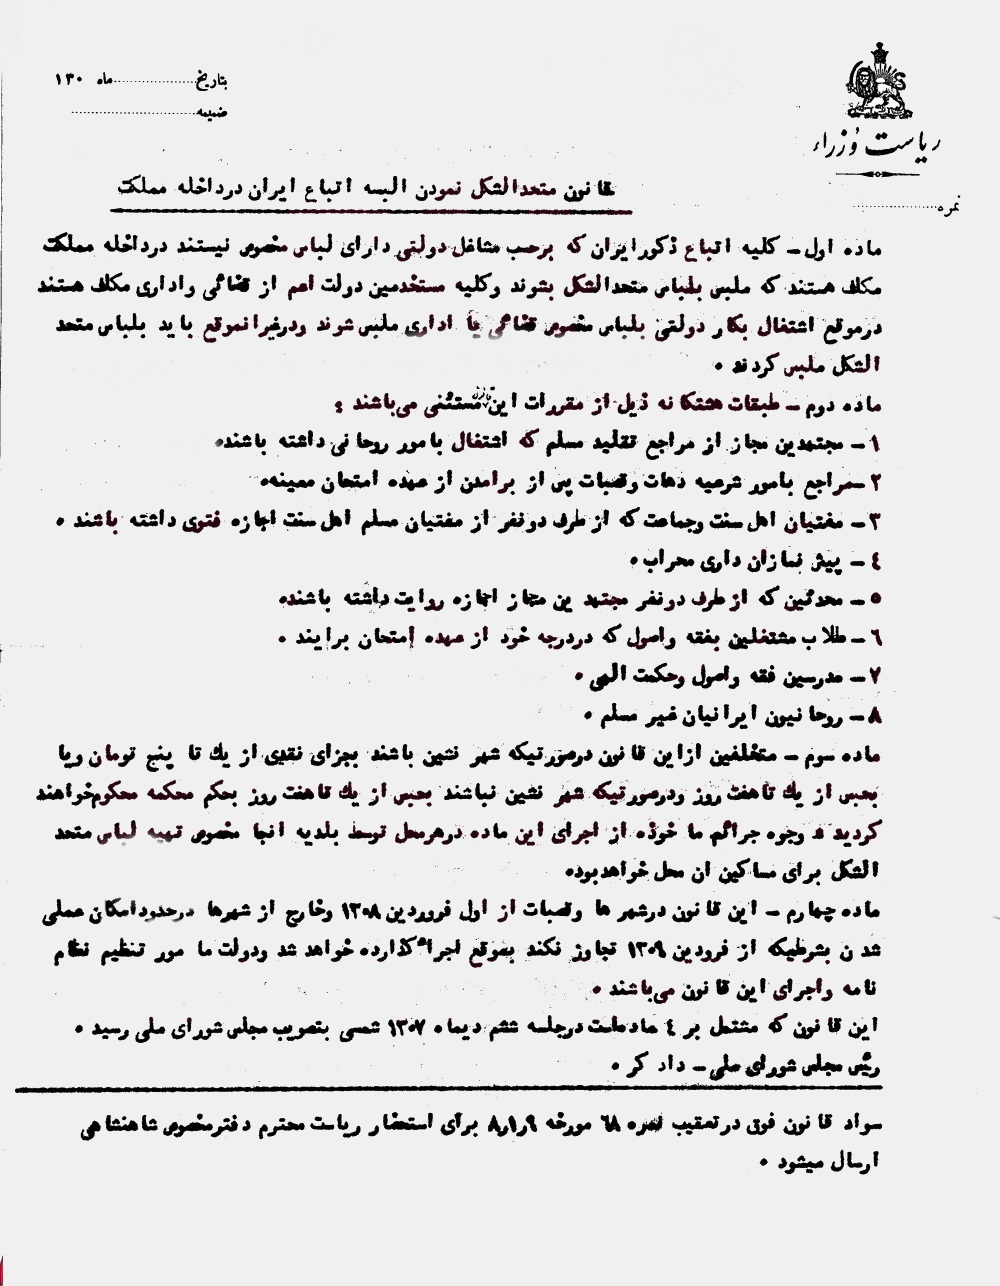 بتاریخ ماه ۱۳۰
ضمیمه
ریاست وزراء
نمره
قانون متحدالشکل نمودن البسه اتباع ایران درداخله مملکت
ماده اول – کلیه اتباع ذکورایران که برحسب مشاغل دولتی دارای لباس مخصوص نیستند درداخله مملکت
مکلف هستند که ملبس بلباس متحدالشکل بشوند وکلیه مستخدمین دولت اعم از قضائی واداری مکلف هستند
درموقع اشتغال بکار دولتی بلباس مخصوص قضائی یا اداری ملبس شوند ودرغیرانموقع باید بلباس متحد
الشکل ملبس کردند ۰
ماده دوم – طبقات هشتکانه ذیل از مقررات این قانون مستثنی می‌باشند :
۱ – مجتهدین مجاز از مراجع تقلید مسلم که اشتغال بامور روحانی داشته باشند۰
۲ – مراجع بامور شرعیه دهات وقصبات پس از برامدن از عهده امتحان معینه۰
۳ – مفتیان اهل سنت وجماعت که از طرف دونفر از مفتیان مسلم اهل سنت اجازه فتوی داشته باشند ۰
٤ – پیش نمازان داری محراب ۰
۵ – محدثین که از طرف دونفر مجتهد ین مجاز اجازه روایت داشته باشند۰
٦ – طلاب مشتغلین بفقه واصول که دردرجه خود از عهده امتحان برایند ۰
۷ – مدرسین فقه واصول وحکمت الهی ۰
۸ – روحانیون ایرانیان غیر مسلم ۰
ماده سوم – متخلفین ازاین قانون درصورتیکه شهر نشین باشند بجزای نقدی از یك تا پنج تومان ویا
بحبس از یك تاهفت روز ودرصورتیکه شهر نشین نباشند بحبس از یك تاهفت روز بحکم محکمه محکوم‌خواهند
کردید ۰ وجوه جرائم ما خوذه از اجرای این ماده درهرمحل توسط بلدیه انجا مخصوص تهیه لباس متحد
الشکل برای مساکین ان محل خواهدبود۰
ماده چهارم – این قانون درشهر ها وقصبات از اول فروردین ۱۳۰۸ وخارج از شهرها درحدودامکان عملی
شدن بشرطیکه از فرودین ۱۳۰۹ تجاوز نکند بموقع اجرا کذارده خواهد شد ودولت ما مور تنظیم نظام
نامه واجرای این قانون می‌باشند ۰
این قانون که مشتمل بر ٤ ماده‌است درجلسه ششم دیماه ۱۳۰۷ شمسی بتصویب مجلس شورای ملی رسید ۰
رئیس مجلس شورای ملی – دادکر ۰
سواد قانون فوق درتعقیب نمره ٦۸ مورخه ۸٫۱٫۹ برای استحضار ریاست محترم دفترمخصوص شاهنشاهی
ارسال میشود ۰